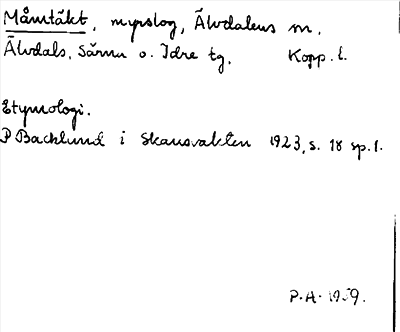 Måmtäkt, myrslog, Älvdalens m.
Älvdals, Särna o. Idre tg. Kopp. l.
Etymologi.
P Backlund i Skansvakten 1923, s. 18 sp. 1.
P.A. 1959.